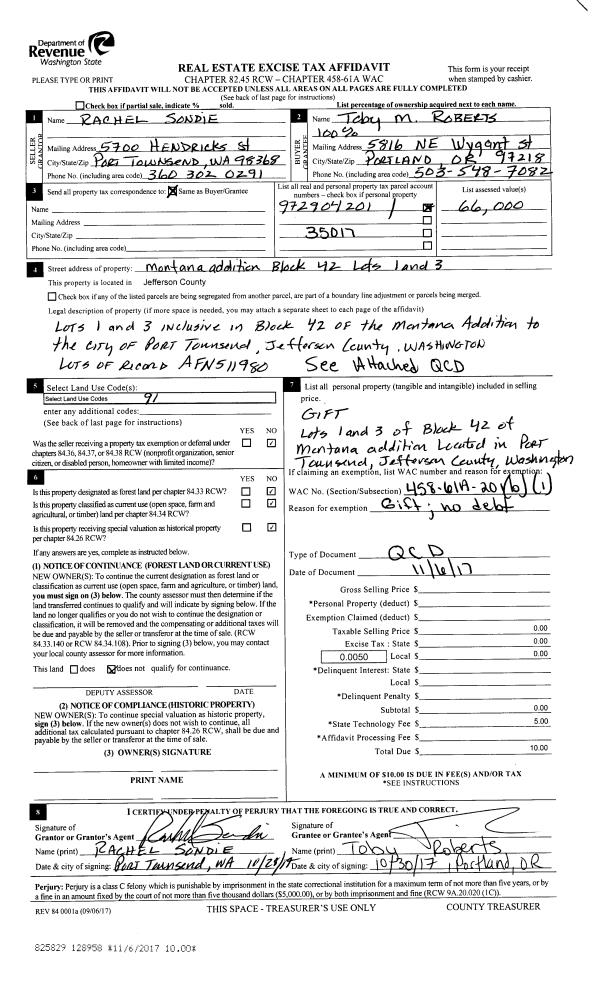 Department of
Revenue
Washington State
PLEASE TYPE OR PRINT
REAL ESTATE EXCISE TAX AFFIDAVIT
CHAPTER 82.45 RCW – CHAPTER 458-61A WAC
This form is your receipt
when stamped by cashier.
THIS AFFIDAVIT WILL NOT BE ACCEPTED UNLESS ALL AREAS ON ALL PAGES ARE FULLY COMPLETED
(See back of last page for instructions)
Check box if partial sale, indicate % sold.
List percentage of ownership acquired next to each name.
1
SELLER
GRANTOR
Name RACHEL SONDIE
Mailing Address 5700 HENDRICKS St
City/State/Zip PORT TOWNSEND, WA 98368
Phone No. (including area code) 360 302 0291
2
BUYER
GRANTEE
Name Toby M. ROBERTS
100%
Mailing Address 5816 NE Wygant St
City/State/Zip PORTLAND, OR 97218
Phone No. (including area code) 503-548-7082
3
Send all property tax correspondence to: Same as Buyer/Grantee
Name
Mailing Address
City/State/Zip
Phone No. (including area code)
List all real and personal property tax parcel account
numbers – check box if personal property
972904201
35017
List assessed value(s)
66,000
4
Street address of property: Montana addition Block 42 Lots 1 and 3
This property is located in Jefferson County
Check box if any of the listed parcels are being segregated from another parcel, are part of a boundary line adjustment or parcels being merged.
Legal description of property (if more space is needed, you may attach a separate sheet to each page of the affidavit)
LOTS 1 and 3 inclusive in Block 42 OF the Montana Addition to
the CITY OF PORT Townsend, Jefferson County, WASHINGTON
LOTS OF RECORD AFN511980 See Attached QCD
5
Select Land Use Code(s):
Select Land Use Codes 91
enter any additional codes:
(See back of last page for instructions)
YES NO
Was the seller receiving a property tax exemption or deferral under
chapters 84.36, 84.37, or 84.38 RCW (nonprofit organization, senior
citizen, or disabled person, homeowner with limited income)?
6
YES NO
Is this property designated as forest land per chapter 84.33 RCW?
Is this property classified as current use (open space, farm and
agricultural, or timber) land per chapter 84.34 RCW?
Is this property receiving special valuation as historical property
per chapter 84.26 RCW?
If any answers are yes, complete as instructed below.
(1) NOTICE OF CONTINUANCE (FOREST LAND OR CURRENT USE)
NEW OWNER(S): To continue the current designation as forest land or
classification as current use (open space, farm and agriculture, or timber) land,
you must sign on (3) below. The county assessor must then determine if the
land transferred continues to qualify and will indicate by signing below. If the
land no longer qualifies or you do not wish to continue the designation or
classification, it will be removed and the compensating or additional taxes will
be due and payable by the seller or transferor at the time of sale. (RCW
84.33.140 or RCW 84.34.108). Prior to signing (3) below, you may contact
your local county assessor for more information.
This land does does not qualify for continuance.
DEPUTY ASSESSOR DATE
(2) NOTICE OF COMPLIANCE (HISTORIC PROPERTY)
NEW OWNER(S): To continue special valuation as historic property,
sign (3) below. If the new owner(s) does not wish to continue, all
additional tax calculated pursuant to chapter 84.26 RCW, shall be due and
payable by the seller or transferor at the time of sale.
(3) OWNER(S) SIGNATURE
PRINT NAME
7
List all personal property (tangible and intangible) included in selling
price.
GIFT
Lots 1 and 3 of Block 42 of
Montana addition Located in PORT
Townsend, Jefferson County, Washington
If claiming an exemption, list WAC number and reason for exemption:
WAC No. (Section/Subsection) 458-61A-201(b)(1)
Reason for exemption
Gift; no debt
Type of Document QCD
Date of Document 11/6/17
Gross Selling Price $
*Personal Property (deduct) $
Exemption Claimed (deduct) $
Taxable Selling Price $ 0.00
Excise Tax : State $ 0.00
0.0050 Local $ 0.00
*Delinquent Interest: State $
Local $
*Delinquent Penalty $
Subtotal $ 0.00
*State Technology Fee $ 5.00
*Affidavit Processing Fee $
Total Due $ 10.00
A MINIMUM OF $10.00 IS DUE IN FEE(S) AND/OR TAX
*SEE INSTRUCTIONS
8
I CERTIFY UNDER PENALTY OF PERJURY THAT THE FOREGOING IS TRUE AND CORRECT.
Signature of
Grantor or Grantor's Agent
Name (print) RACHEL SONDIE
Date & city of signing: PORT Townsend, WA 10/28/17
Signature of
Grantee or Grantee's Agent
Name (print) Toby Roberts
Date & city of signing: 10/30/17, Portland, OR
Perjury: Perjury is a class C felony which is punishable by imprisonment in the state correctional institution for a maximum term of not more than five years, or by
a fine in an amount fixed by the court of not more than five thousand dollars ($5,000.00), or by both imprisonment and fine (RCW 9A.20.020 (1C)).
REV 84 0001a (09/06/17)
THIS SPACE - TREASURER'S USE ONLY
COUNTY TREASURER
825829 128958 *11/6/2017 10.00*